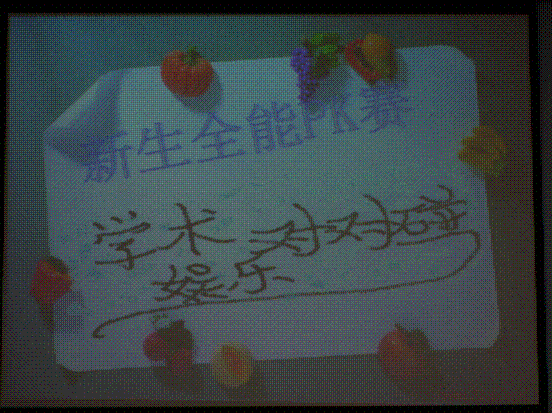 新生全能PK赛
学术对对碰
娱乐